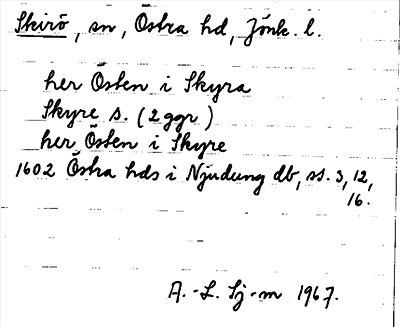 Skirö, sn, Östra hd, Jönk. l.
her Östen i Skyra
Skyre s. (2 ggr)
her Östen i Skyre
1602 Östra hds i Njudung db, ss. 3, 12,
16.
A.-L. Sj-m 1967.